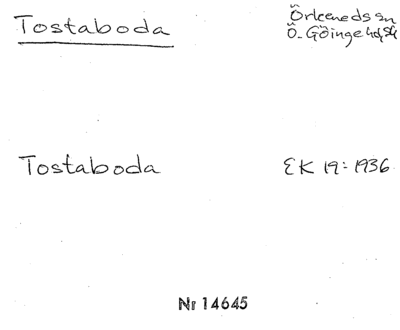 Tostaboda
Örkeneds sn
Ö. Göinge hd, Sk
Tostaboda
EK 19: 1936
Nr 14645